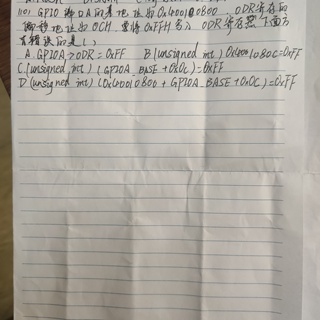 10. GPIO 端口A的基地址为0x40010800 ODR寄存的
偏移地址为 0CH 要将 0xFFH 写入 ODR寄存器 下面方
的是( )
A. GPIOA->ODR = 0xFF B. (unsigned int) 0x4001080C=0xFF
C. (unsigned int) (GPIOA_BASE + 0x0C) = 0xFF
D. (unsigned int) (0x40010800 + GPIOA_BASE + 0x0C) = 0xFF